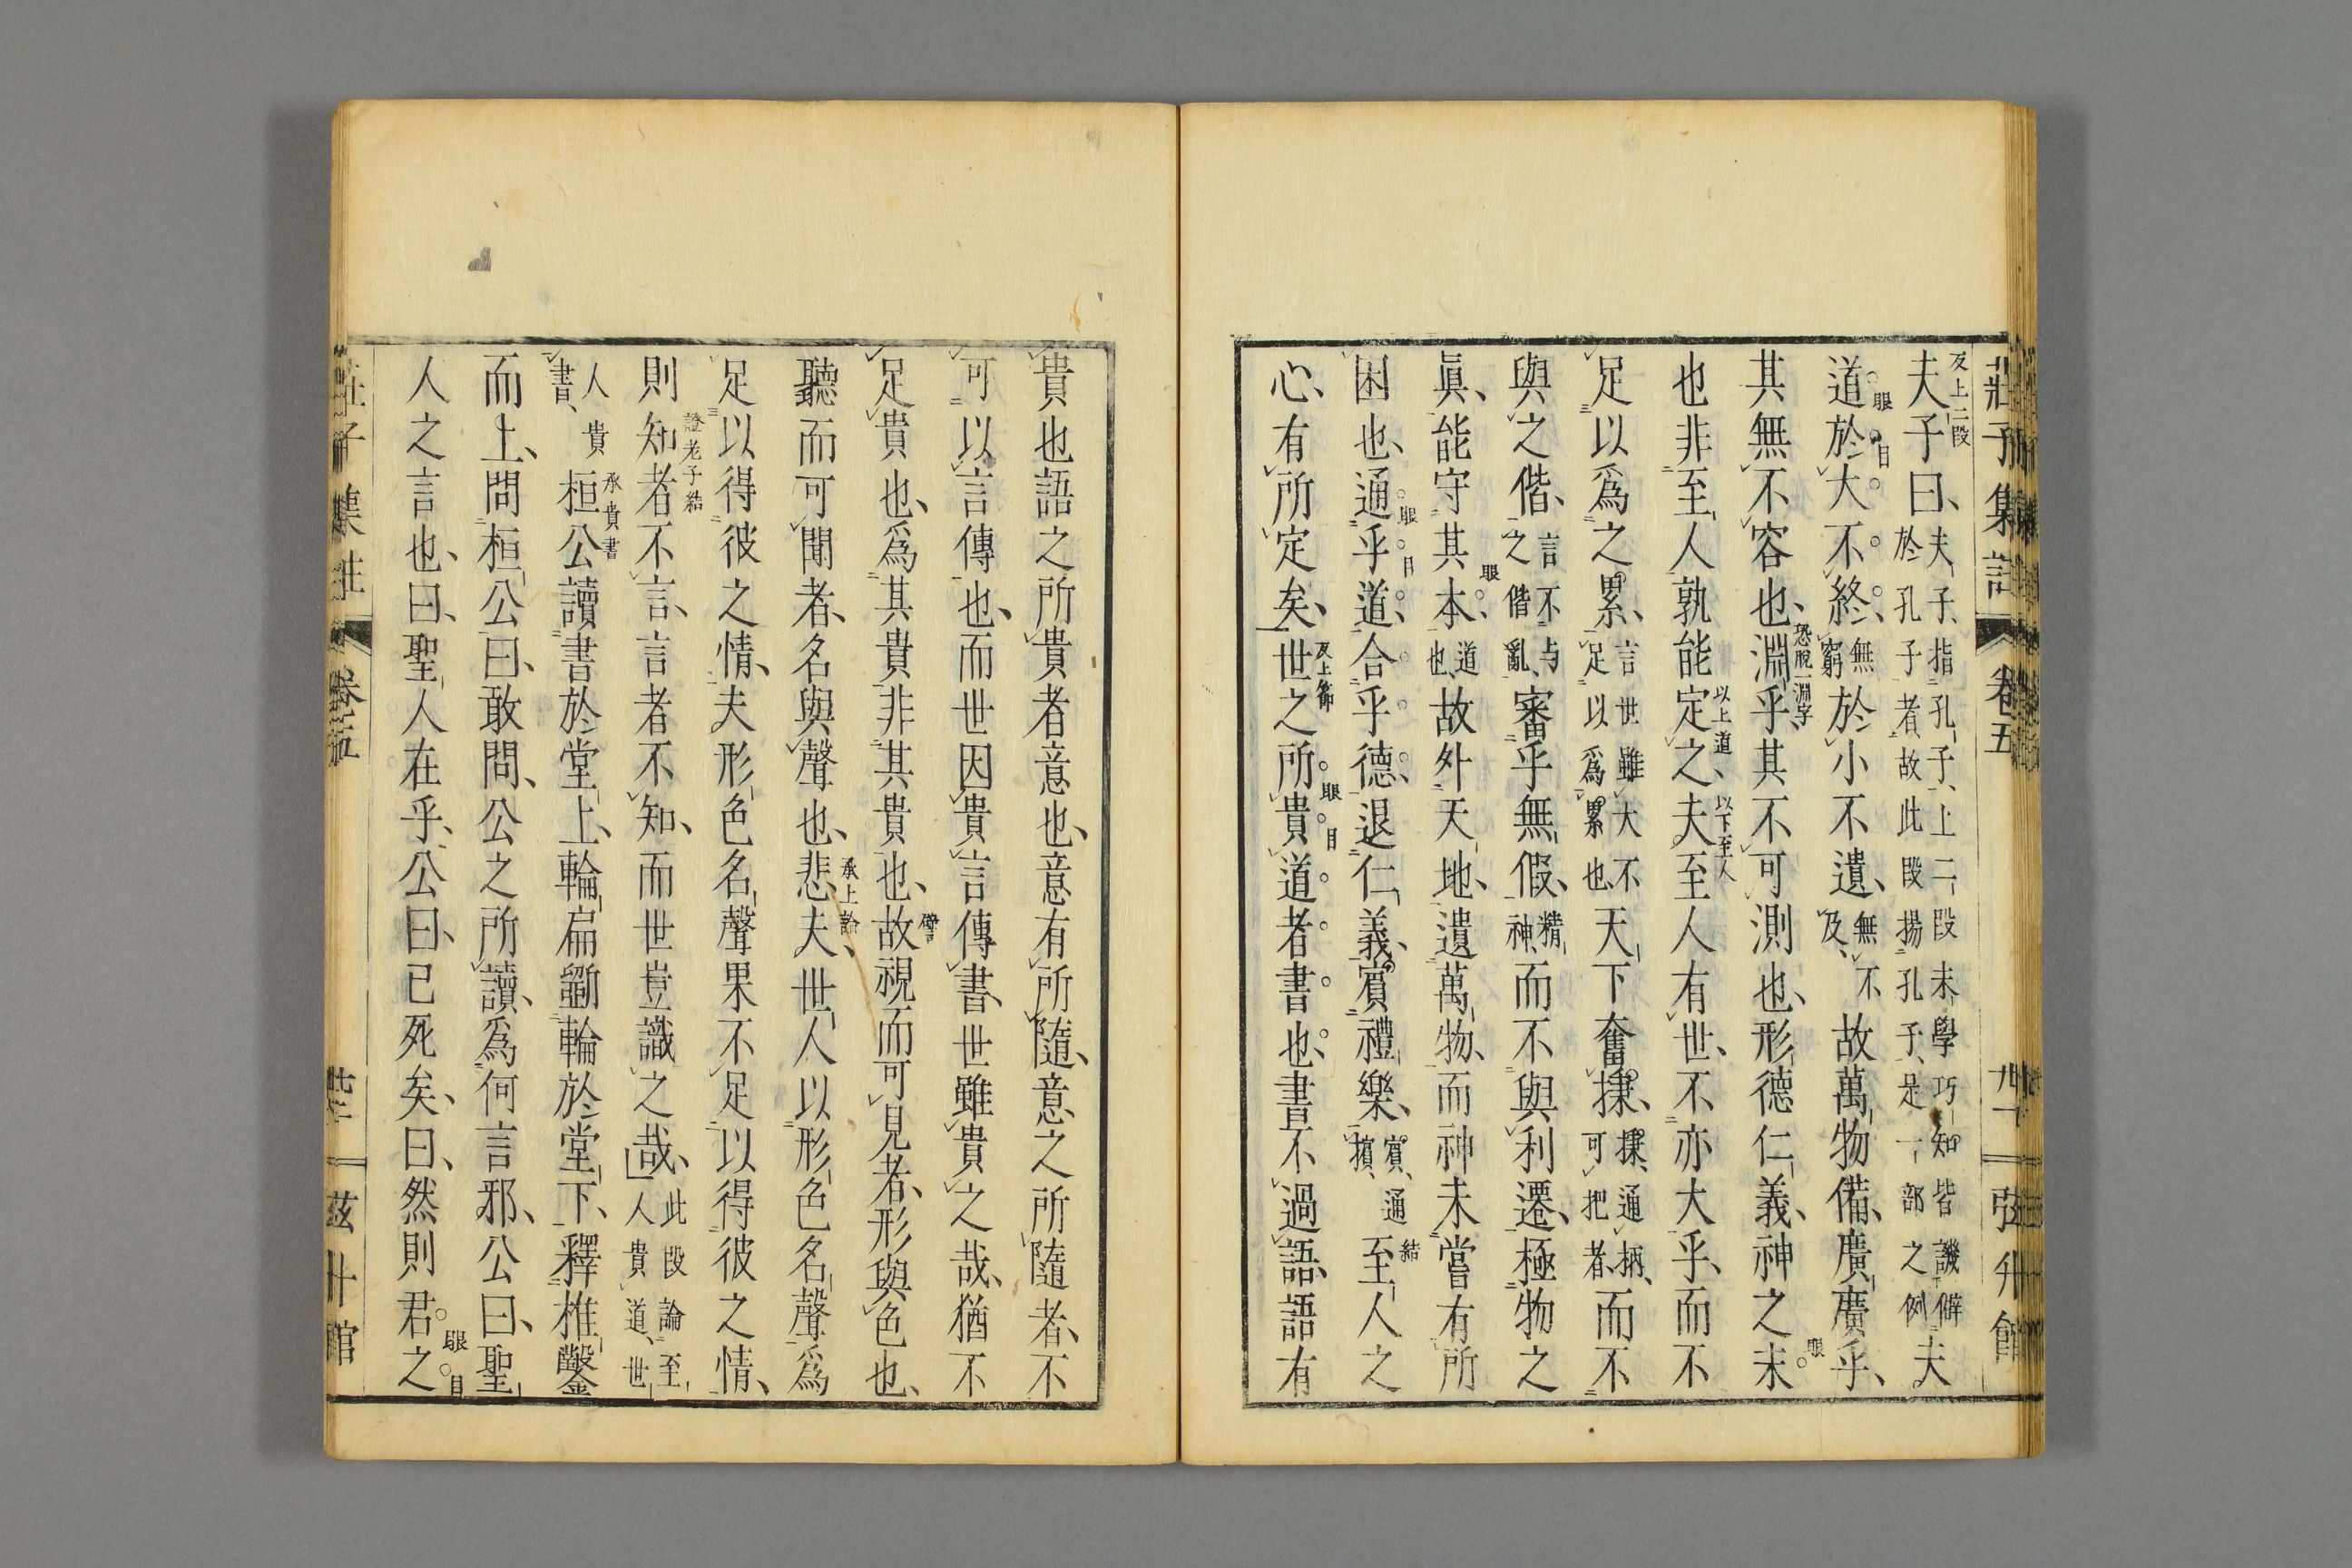 莊子集註 卷五 九十 弢升館
反上二段
夫子曰、夫子、指孔子、上二段未學巧知皆譏僻於孔子者、故此段揚孔子、是一部之例夫
眼目
道於大不終、無窮於小不遺、無不及、故萬物備、廣廣乎、
其無不容也、淵乎、其不可測也、形德仁義、神之末
恐脫一淵字
眼
也非至人孰能定之、夫至人有世、不亦大乎、而不
以上道、以下至人
足以爲之累、言世雖大不足以爲累也、天下奮棅、棅、通柄、可把者、而不
與之偕、言不与之偕亂、審乎無假、精神、而不與利遷、極物之
眞、能守其本、道也、故外天地、遺萬物、而神未嘗有所
眼
困也、通乎道、合乎德、退仁義、賓禮樂、賓、通擯、至人之
眼目
結
心、有所定矣、世之所貴道者書也、書不過語、語有
反上節
眼目
貴也語之所貴者意也、意有所隨、意之所隨者、不
可以言傳也、而世因貴言傳書、世雖貴之哉、猶不
足貴也、爲其貴非其貴也、故視而可見者、形與色也、
譬
聽而可聞者、名與聲也、悲夫、世人以形色名聲爲
承上論
足以得彼之情、夫形色名聲果不足以得彼之情、
則知者不言、言者不知、而世豈識之哉、此段論至人貴道、世
證老子結
人貴書、桓公讀書於堂上、輪扁斲輪於堂下、釋椎鑿
承貴書
而上、問桓公曰、敢問、公之所讀、爲何言邪、公曰、聖
人之言也、曰、聖人在乎、公曰、已死矣、曰、然則君之
眼目
莊子集註 卷五